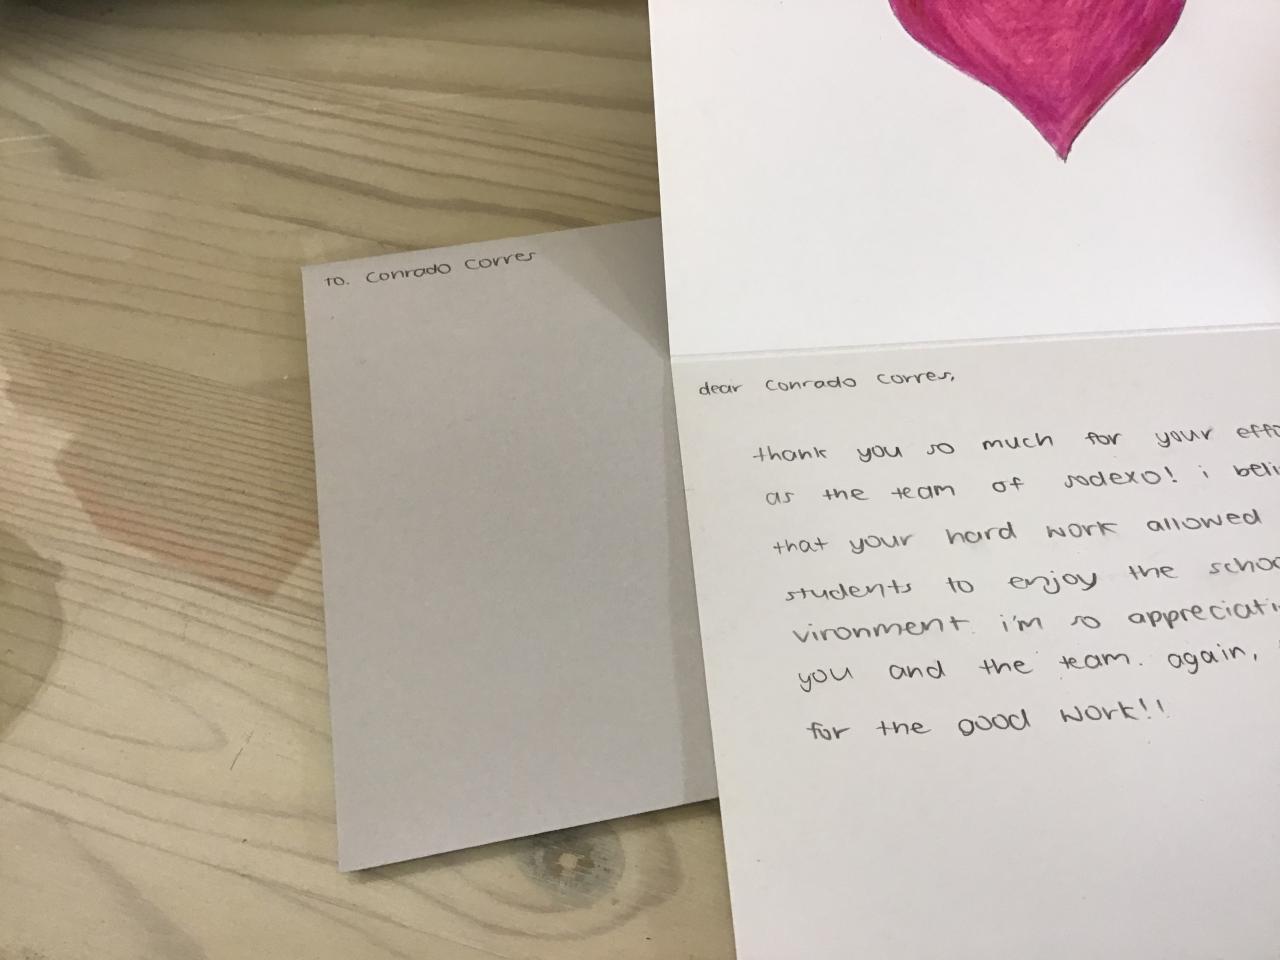 TO. Conrado Corres
dear Conrado Corres,
thank you so much for your effo
as the team of sodexo! i beli
that your hard work allowed
students to enjoy the schoo
vironment. i'm so appreciati
you and the team. again,
for the good work!!